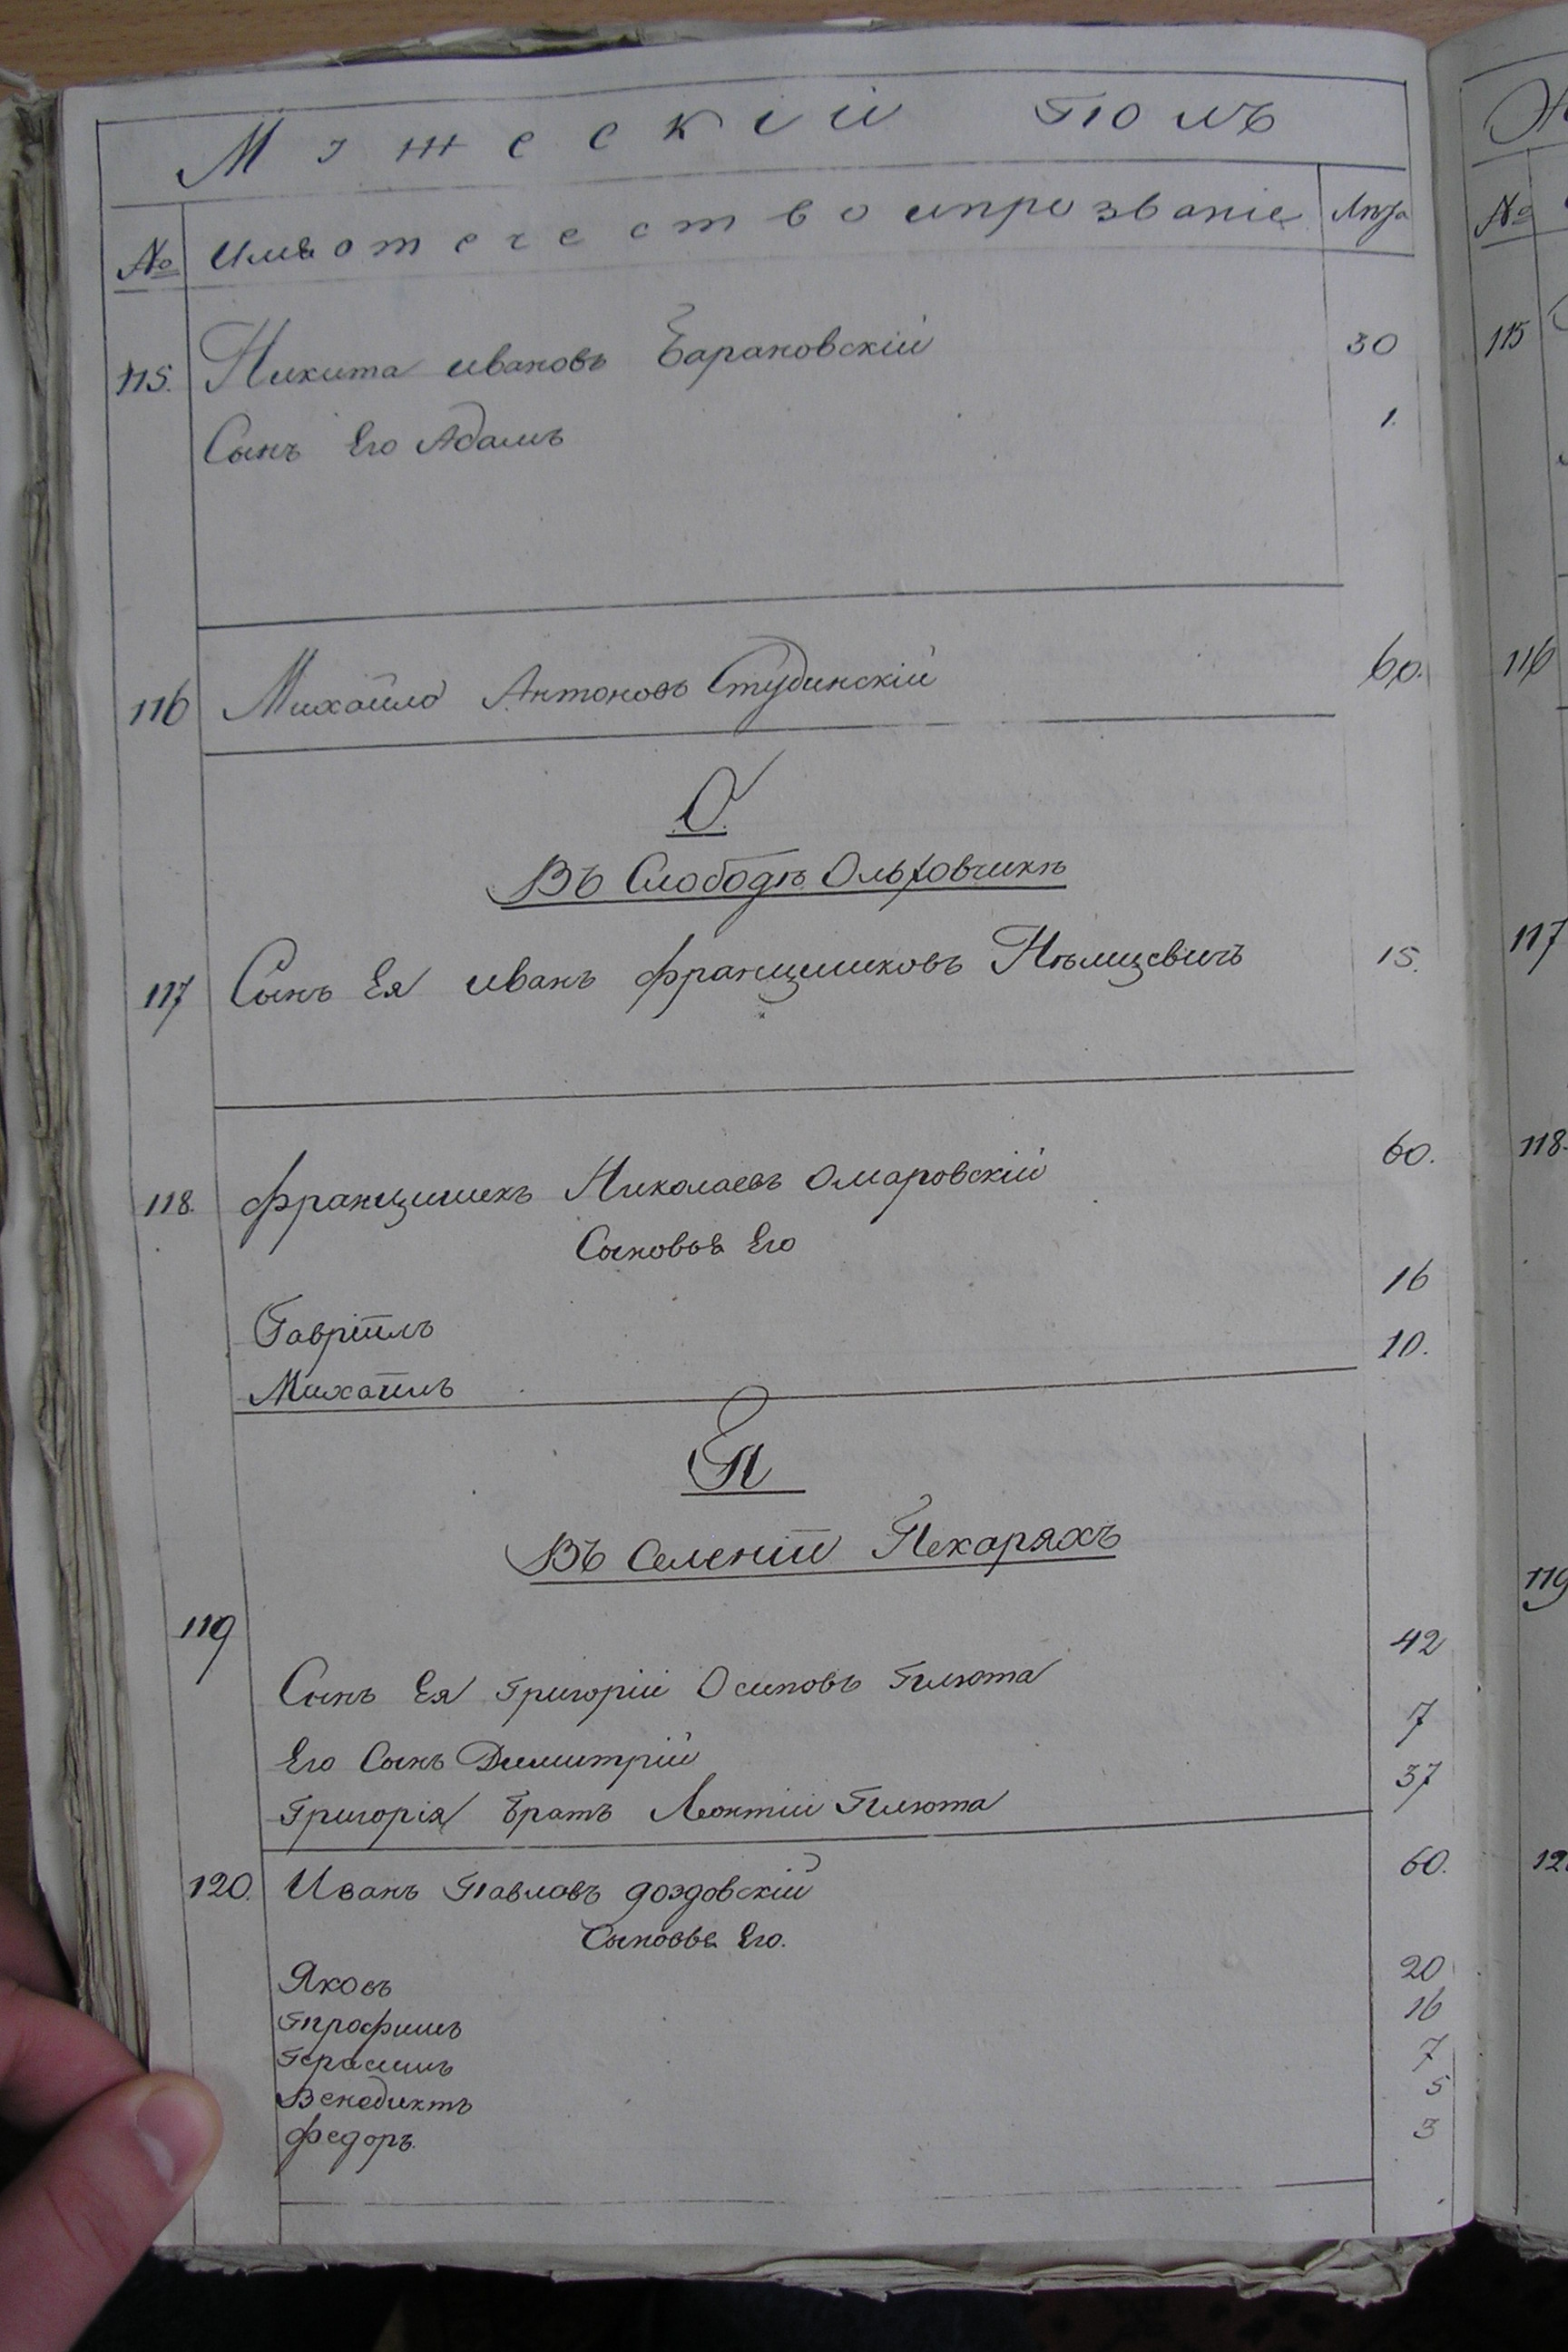 Мужескій полъ
№ Имя отечество и прозваніе Лѣта
115. Никита Ивановъ Барановскій 30
Сынъ Его Адамъ 1.
116 Михайло Антоновъ Студинскій 60.
О.
Въ Слободѣ Ольховчикѣ
117 Сынъ Ея Иванъ Францишковъ Нѣмцевичъ 15.
118. Францишекъ Николаевъ Омаровскій 60.
Сыновья Его
Гавріилъ 16
Михаилъ 10.
П
Въ Селеніи Пекаряхъ
119
Сынъ Ея Григорій Осиповъ Пилюта 42
Его Сынъ Димитрій 7
Григорія братъ Леонтій Пилюта 37
120. Иванъ Павловъ Дроздовскій 60.
Сыновья Его.
Яковъ 20
Трофимъ 16
Герасимъ 7
Венедиктъ 5
Федоръ. 3
№
115
116
117
118.
119